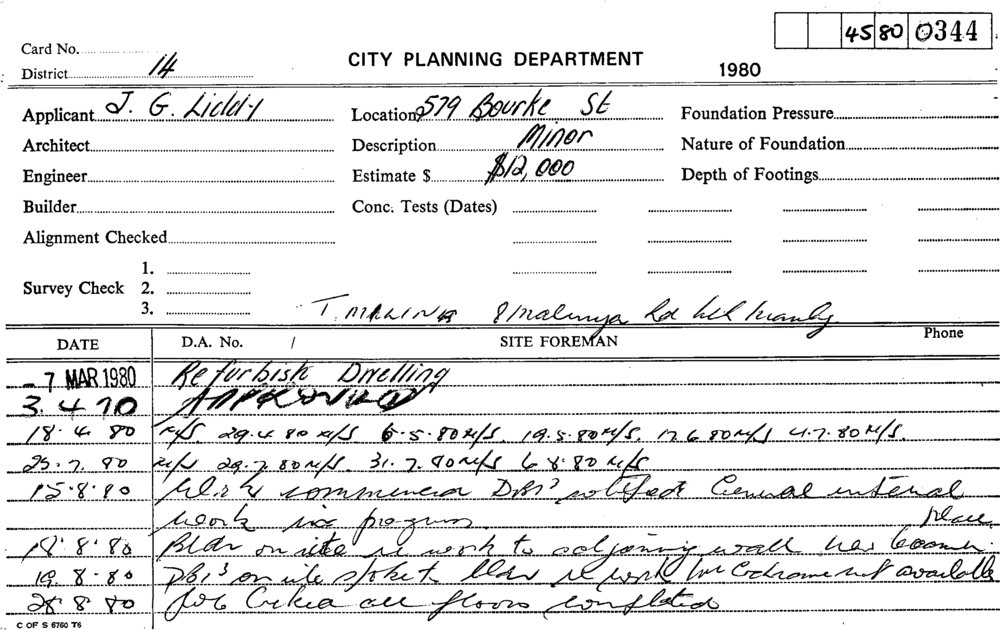 45 80 0344
Card No.
District 14
CITY PLANNING DEPARTMENT
1980
Applicant J. G. Liddy
Location 579 Bourke St
Foundation Pressure
Architect
Description Minor
Nature of Foundation
Engineer
Estimate $ $12,000
Depth of Footings
Builder
Conc. Tests (Dates)
Alignment Checked
Survey Check 1.
2.
3.
T.
DATE D.A. No. / SITE FOREMAN Phone
- 7 MAR 1980 Refurbish Dwelling
3. 4 APPROVED
18. 4. 80 N/S. 29.4.80 N/S 6.5.80 N/S. 19.5.80 N/S. 17.6.80 N/S 4.7.80 N/S.
25.7.80 N/S 29.7.80 N/S. 31.7.80 N/S 6.8.80 N/S
15.8.80 Work commenced notified General internal
work in progress
18.8.80 Bldr on site re work to adjoining wall
19.8.80 on site spoke to bldr re work not available
28.8.80 all floors completed
C OF S 6760 T6